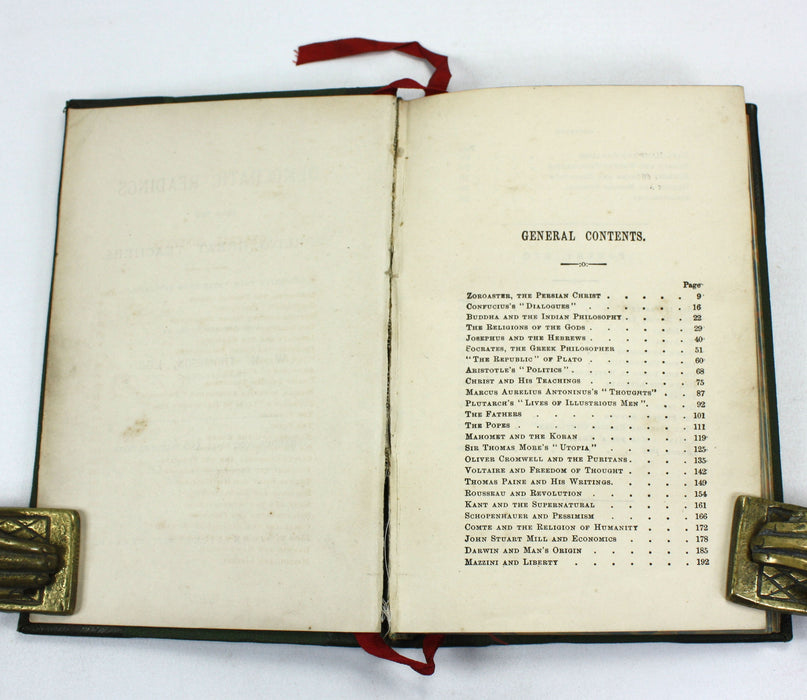 GENERAL CONTENTS.
Page
ZOROASTER, THE PERSIAN CHRIST . . . . . 9
CONFUCIUS'S "DIALOGUES" . . . . . 16
BUDDHA AND THE INDIAN PHILOSOPHY . . . . 22
THE RELIGIONS OF THE GODS . . . . . 29
JOSEPHUS AND THE HEBREWS . . . . . 40
FOCRATES, THE GREEK PHILOSOPHER . . . . 51
"THE REPUBLIC" OF PLATO . . . . . 60
ARISTOTLE'S "POLITICS" . . . . . . 68
CHRIST AND HIS TEACHINGS . . . . . 75
MARCUS AURELIUS ANTONINUS'S "THOUGHTS" . . 87
PLUTARCH'S "LIVES OF ILLUSTRIOUS MEN". . . . 92
THE FATHERS . . . . . . . 101
THE POPES . . . . . . . . 111
MAHOMET AND THE KORAN . . . . . 119
SIR THOMAS MORE'S "UTOPIA" . . . . . 125
OLIVER CROMWELL AND THE PURITANS. . . . 135
VOLTAIRE AND FREEDOM OF THOUGHT . . . . 142
THOMAS PAINE AND HIS WRITINGS. . . . . 149
ROUSSEAU AND REVOLUTION . . . . . 154
KANT AND THE SUPERNATURAL . . . . . 161
SCHOPENHAUER AND PESSIMISM . . . . . 166
COMTE AND THE RELIGION OF HUMANITY . . . 172
JOHN STUART MILL AND ECONOMICS . . . . 178
DARWIN AND MAN'S ORIGIN . . . . . 185
MAZZINI AND LIBERTY . . . . . . 192